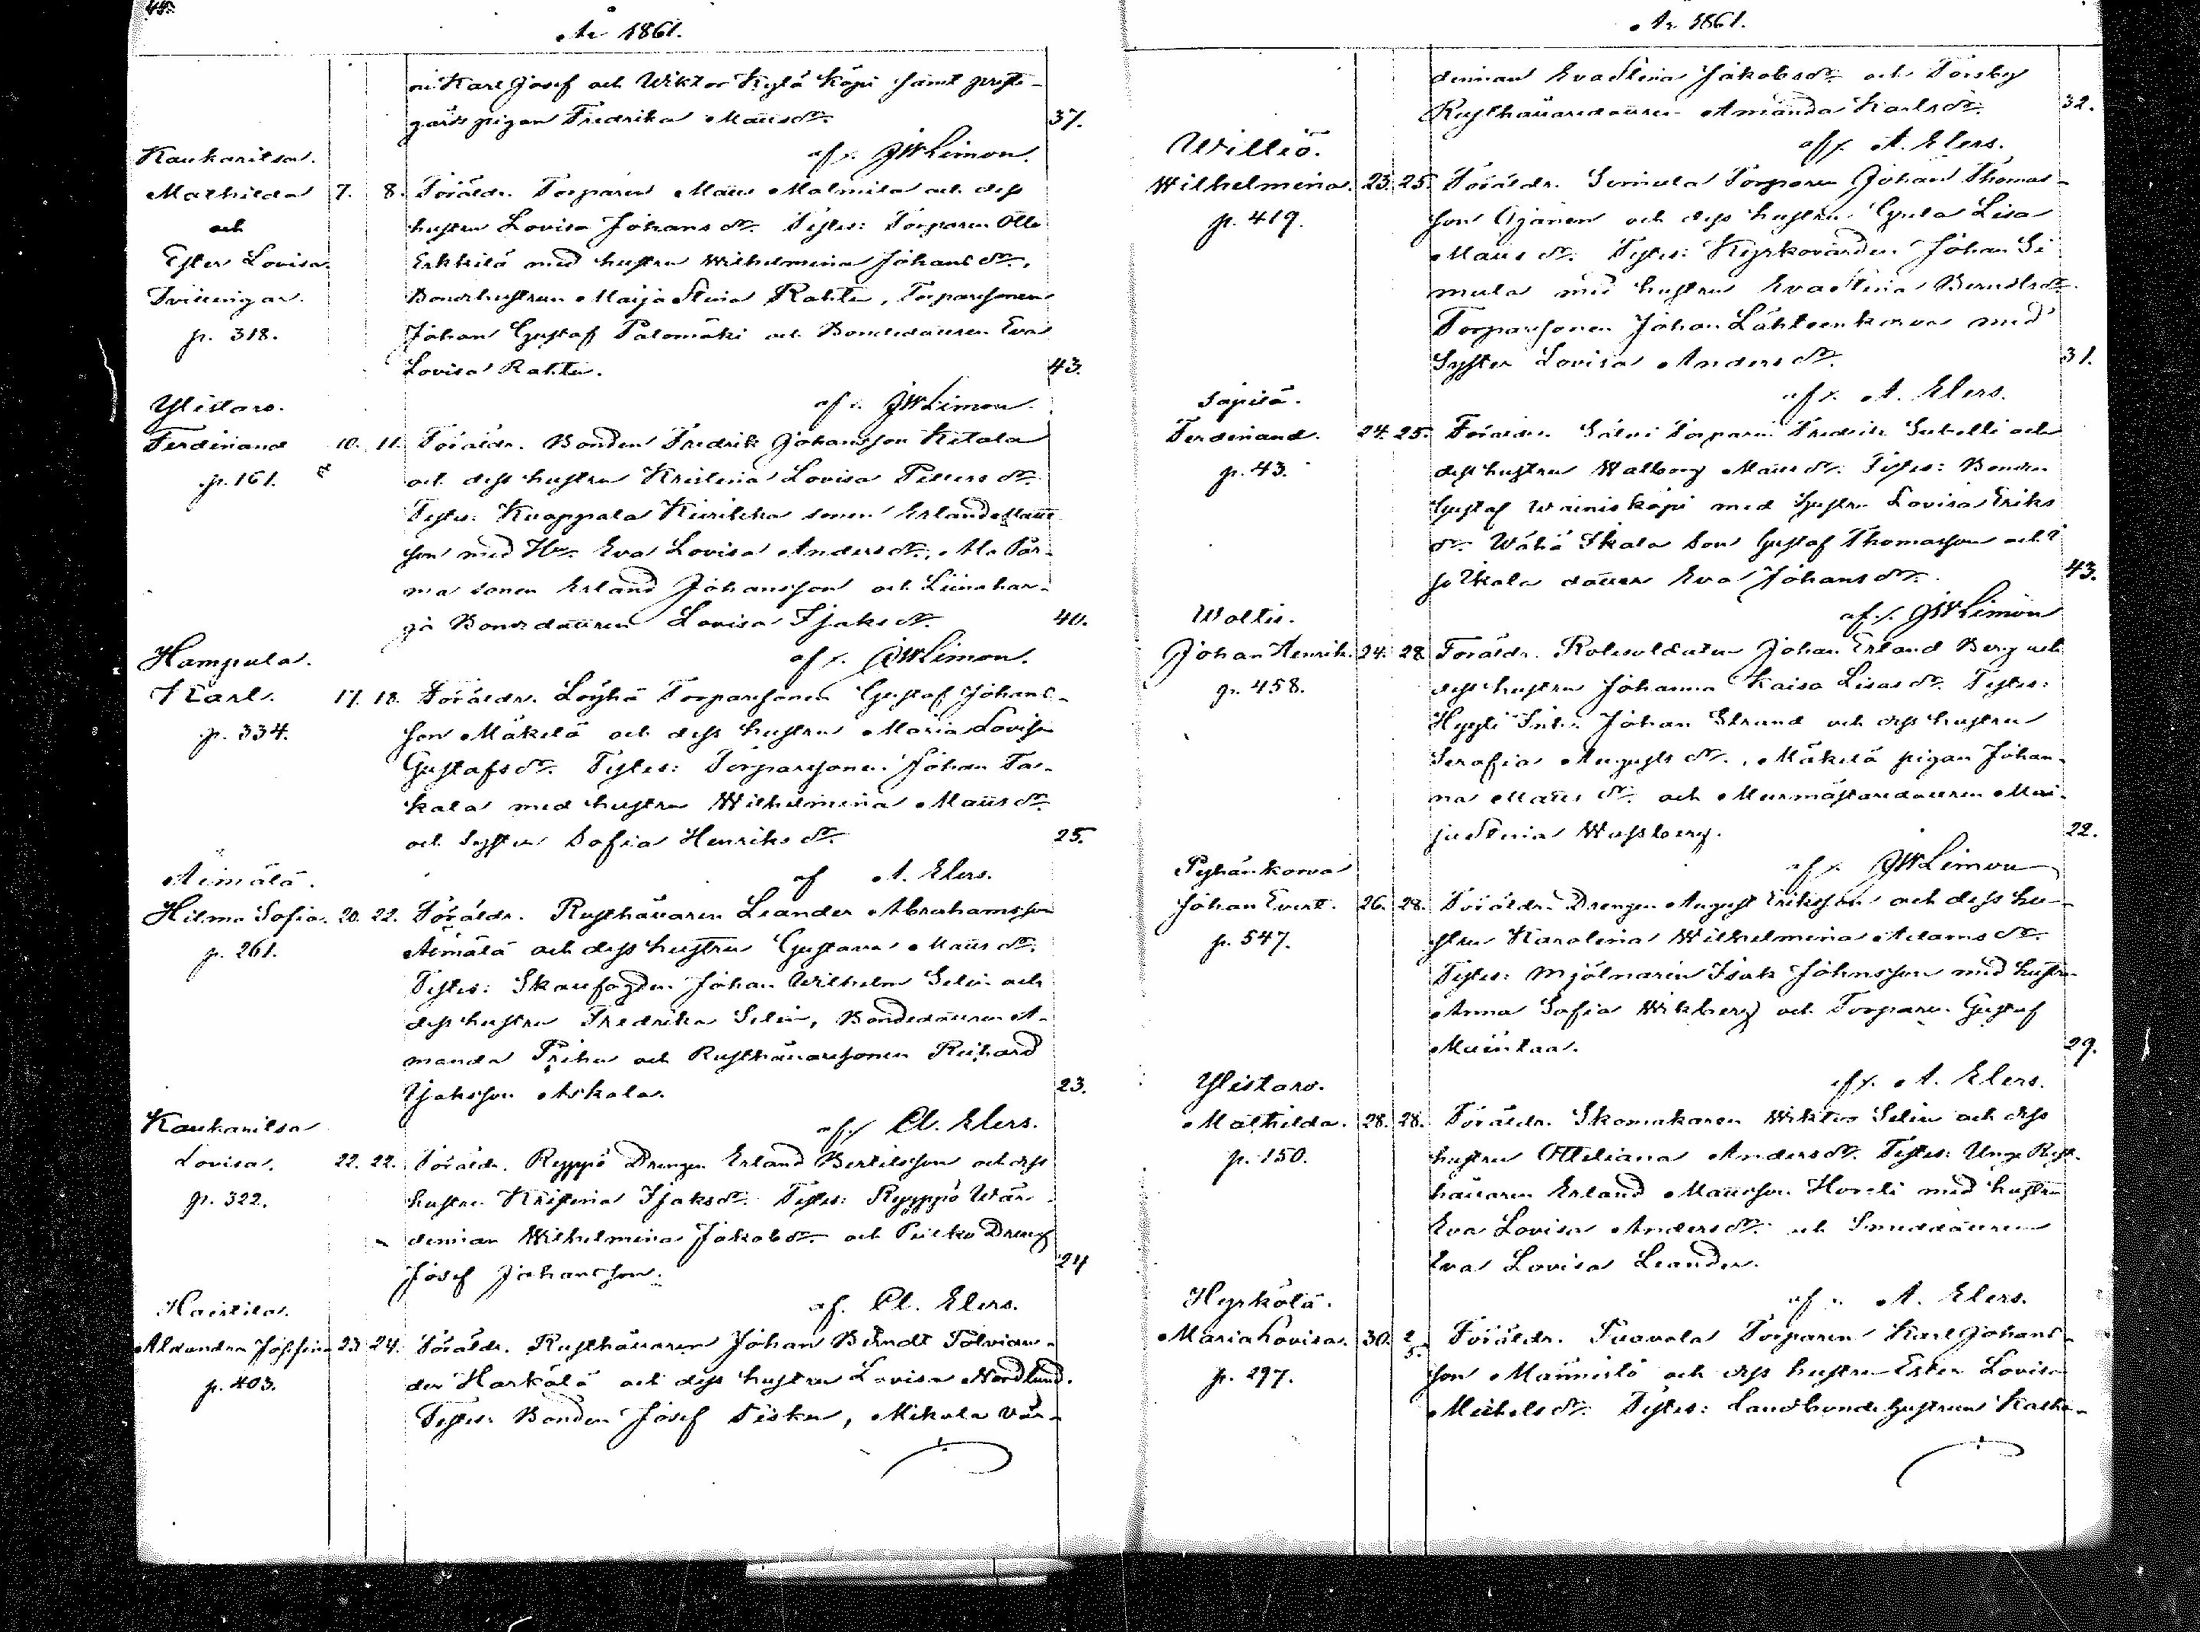 44.
År 1861.
ni Karl Josef och Wiktor Kylä Köpi samt prest-
gårds pigan Fredrika Mattsdr.
37.
af. JWLimon.
Kauharitsa.
Mathilda 7. 8. Föräldr. Torparen Matts Malmila och dess
och
hustru Lovisa Johansdr. Testes: Torparen Otto
Ester Lovisa
Erkkilä med hustru Wilhelmina Johansdr.,
Tvillingar.
Bondhustrun Maija Stina Rahtu, Torparesonen
p. 318.
Johan Gustaf Palomäki och Bondedottren Eva
Lovisa Rahtu.
43.
af. JWLimon.
Ylistaro.
Ferdinand 10. 11. Föräldr. Bonden Fredrik Johansson Ketola
p. 161.
och dess hustru Kristina Lovisa Petters dr.
Testes: Knappala sonen Erland Matts
son med Hu. Eva Lovisa Andersdr., Ala Pär-
ma sonen Erland Johansson och Liinahar-
ja Bondedottren Lovisa Isaks dr.
40.
af. JWLimon.
Hampula.
Karl. 17. 18. Föräldr. Löyhä Torparesonen Gustaf Johans-
p. 334.
son Mäkelä och dess hustru Maria Lovisa
Gustafsdr. Testes: Torparesonen Johan Ta-
kala med hustru Wilhelmina Matts dr.
och Syster Sofia Henriks dr.
25.
af A. Elers.
Äimälä.
Hilma Sofia. 20. 22. Föräldr. Rusthållaren Leander Abrahamsson
p. 261.
Äimälä och dess hustru Gustava Matts dr.
Testes: Skoufogden Johan Wilhelm Selin och
dess hustru Fredrika Selin, Bondedottren A-
manda Prihu och Rusthållaresonen Richard
Isaksson Askala.
23.
af. Cl. Elers.
Kauharitsa
Lovisa. 22. 22. Föräldr. Reppo Drengen Erland Bertilsson och dess
p. 322.
hustru Kristina Isaksdr. Testes: Reppo Wär-
dinnan Wilhelmina Jakobsdr. och Dreng
Josef Johansson.
24
af. Cl. Elers.
Haistila.
Alexandra Josefina 23 24. Föräldr. Rusthållaren Johan Berndt Tolvian-
p. 403.
der Harkälä och dess hustru Lovisa Nordlund.
Testes: Bonden Josef Pisku, Mikola Vär-
År 1861.
dinnan Eva Stina Jakobsdr. och Torsby
Rusthållaredottren Amanda Karlsdr.
32.
af. A. Elers.
Williö.
Wilhelmina. 23. 25. Föräldr. Simula Torparen Johan Thomas-
p. 419.
son Ojanen och dess hustru Greta Lisa
Matts dr. Testes: Kyrkovärden Johan Si
mula med hustru Eva Stina Berndtsdr.
Torparesonen Johan Lähteenkorva med
Syster Lovisa Anders dr.
31.
af. A. Elers.
Säpilä.
Ferdinand. 24. 25. Föräldr. Torparen Fredrik och
p. 43.
dess hustru Walborg Matts dr. Testes: Bonden
Gustaf Wainisköpi med hustru Lovisa Eriks
dr. Wähä Skala Son Gustaf Thomasson och I
so Skala dotter Eva Johansdr.
43.
af. JWLimon
Woltis.
Johan Henrik. 24. 28. Föräldr. Rotesoldaten Johan Erland Berg och
p. 458.
dess hustru Johanna Kaisa Lisas dr. Testes:
Hyysti Inh. Johan Strand och dess hustru
Serafia Augusts dr., Mäkelä pigan Johan-
na Matts dr. och Murmästaredottren Mai-
ja Stina Wassberg.
22.
af. JWLimon
Pyhänkorva
Johan Evert. 26. 28. Föräldr. Drengen August Eriksson och dess hu-
p. 547.
stru Karolina Wilhelmina Adams dr.
Testes: Mjölnaren Isak Johnsson med hustru
Anna Sofia Wikberg och Torparen Gustaf
Muintaa.
29.
af. A. Elers.
Ylistaro.
Mathilda. 28. 28. Föräldr. Skomakaren Wiktor Selin och dess
p. 150.
hustru Ottiliana Andersdr. Testes: Unge Rust-
hållaren Erland Mattsson Honsti med hustru
Eva Lovisa Andersdr. och Smeddottren
Eva Lovisa Leander.
af. A. Elers.
Hyrkölä.
Maria Lovisa. 30. 2/5. Föräldr. Puavola Torparen Karl Johans-
p. 297.
son Männistö och dess hustru Ester Lovisa
Mickels dr. Testes: Landbondehustrun Kaska-